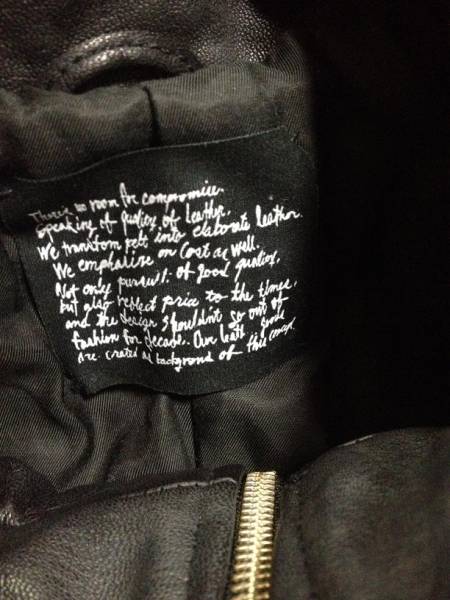 There's no room for compromise.
Speaking of quality of leather.
We transform pelt into elaborate leather.
We emphasize on cost as well.
Not only pursuit of good quality,
but also reflect price to the times,
and the design shouldn't go out of
fashion for decade. Our leath goods
Are created as background of this concept